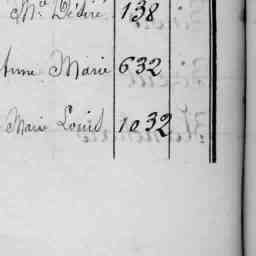 Mie Désiré 138
Anne Marie 632
Marie Louise 1032